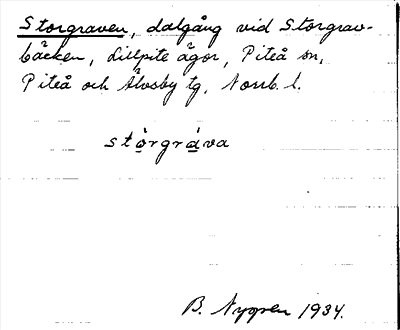 Storgraven, dalgång vid Storgrav-
bäcken, Lillpite ägor, Piteå sn,
Piteå och Älvsby tg, Norrb. l.
stòrgràva
B. Nygren 1934.